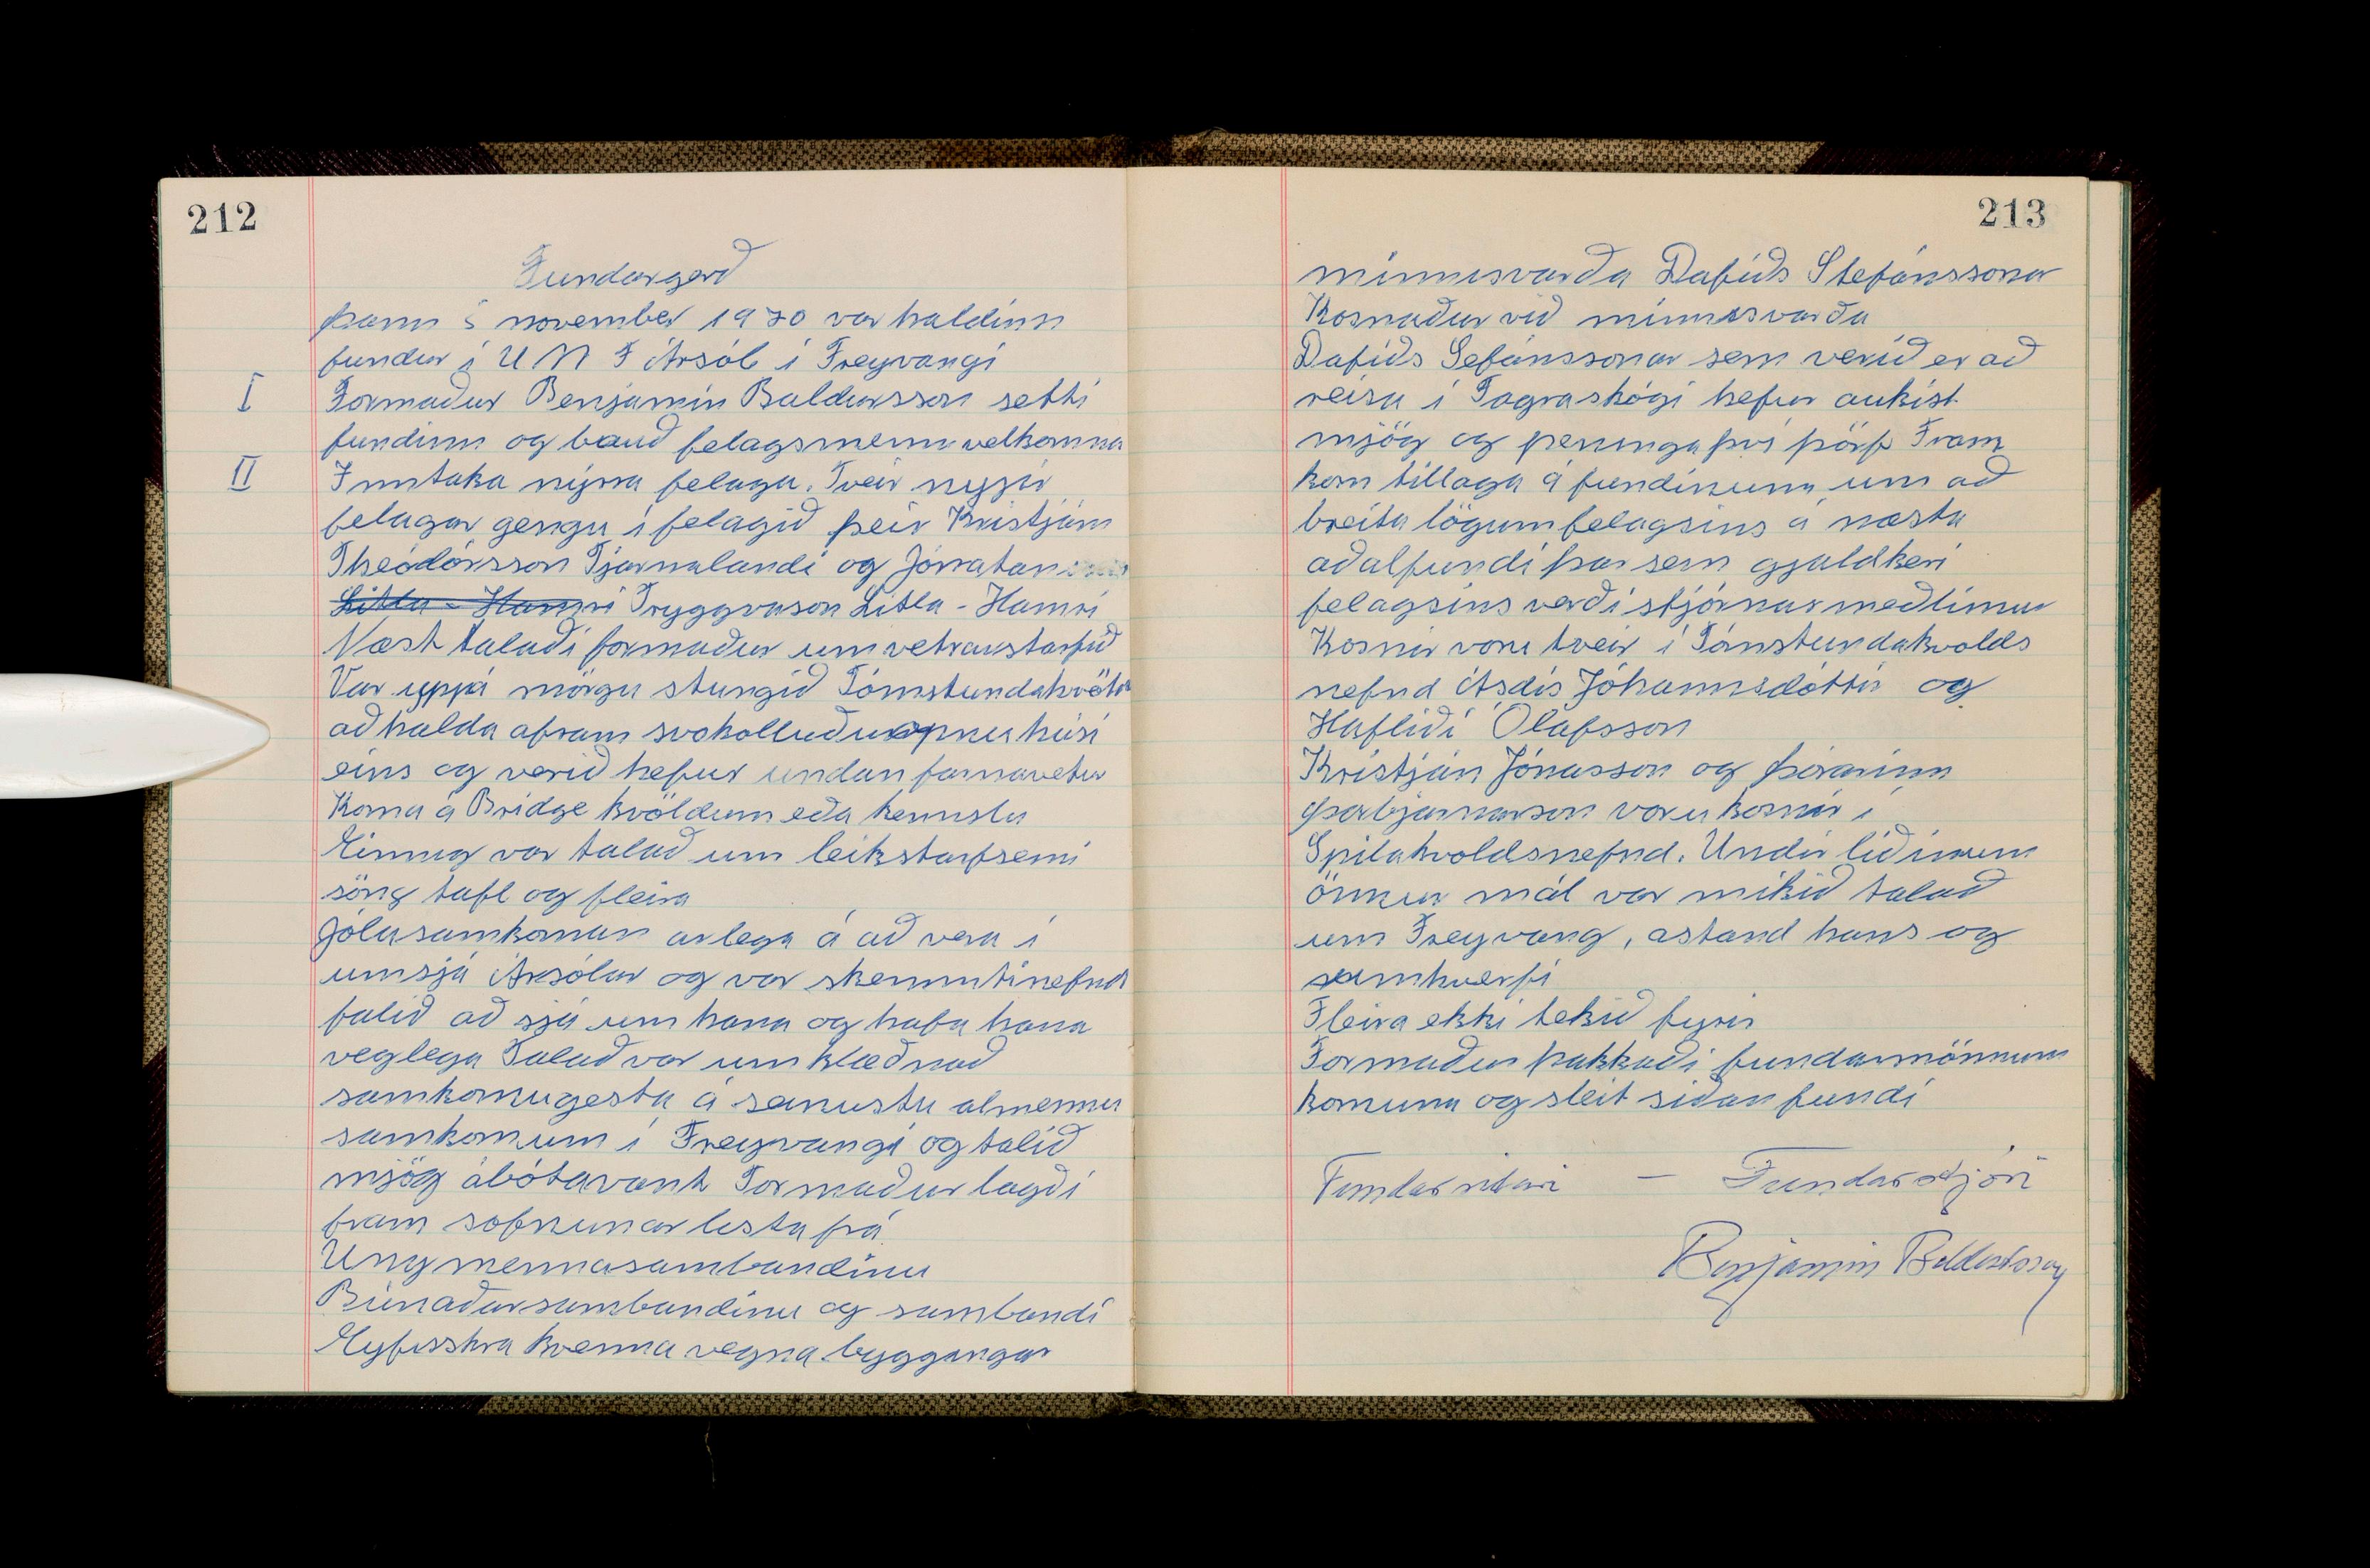 212
Fundargerð
þann 5 november 1970 var haldinn
fundur í U M F Ársól í Freyvangi
I Formaður Benjamín Baldursson setti
fundinn og bauð felagsmenn velkomna
II Inntaka nýrra felaga. Tveir nyjir
felagar gengu í felagið þeir Kristján
Theódórsson Tjarnalandi og Jónatan
Litla-Hamri Tryggvason Litla-Hamri
Næst talaði formaður um vetrarstarfið
Var uppá mörgu stungið Tómstundakvöld
að halda afram svokolluðu opnu húsi
eins og verið hefur undanfarnavetur
Koma á Bridge kvöldum eða kennslu
Einnig var talað um leikstarfsemi
söng tafl og fleira
Jólasamkoman arlega á að vera í
umsjá Ársólar og var skemmtinefnd
falið að sjá um hana og hafa hana
veglega Talað var um klæðnað
samkomugesta á seinustu almennu
samkomum í Freyvangi og talið
mjög ábótavant Formaður lagði
fram sofnunar lista frá
Ungmennasambandinu
Búnaðarsambandinu og sambandi
Eyfisskra kvenna vegna byggingar
213
minnisvarða Dafíðs Stefánssonar
Kosnaður við minnisvarða
Dafíðs Sefánssonar sem verið er að
reisa í Fagraskógi hefur aukist
mjög og peninga því þörf Fram
kom tillaga á fundinum um að
breita lögum felagsins á næsta
aðalfundi þar sem gjaldkeri
felagsins verði stjórnarmeðlimur
Kosnir voru tveir í Tómstundakvolds
nefnd Ásdís Jóhannsdóttir og
Hafliði Ólafsson
Kristján Jónasson og Þórarinn
Þorbjarnarson voru kosnir í
Spilakvoldsnefnd. Undir liðinum
önnur mál var mikið talað
um Freyvang, astand hans og
umhverfi
Fleira ekki tekið fyrir
Formaður þakkaði fundarmönnum
komuna og sleit síðan fundi
Fundarritari — Fundarstjóri
Benjamín Baldursson